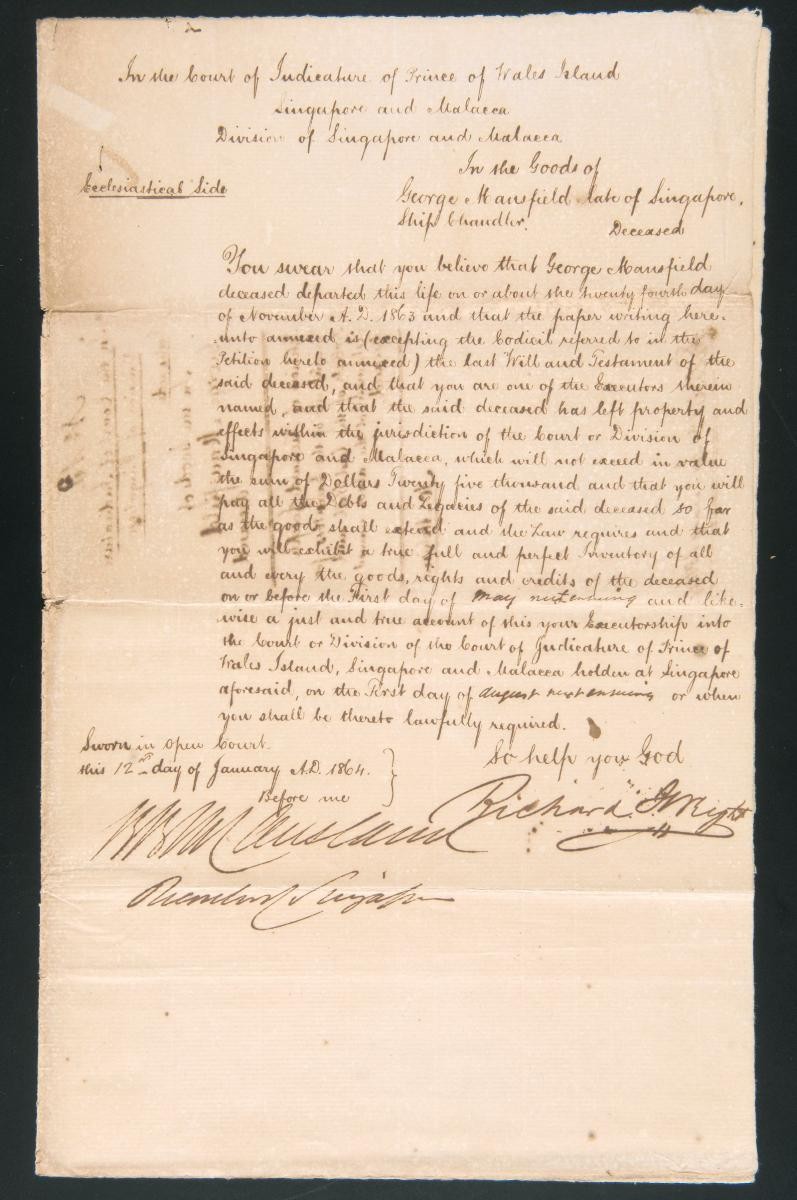 In the Court of Judicature of Prince of Wales Island
Singapore and Malacca
Division of Singapore and Malacca
Ecclesiastical Side
In the Goods of
George Mansfield late of Singapore,
Ship Chandler.
Deceased
You swear that you believe that George Mansfield
deceased departed this life on or about the twenty fourth day
of November A.D. 1863 and that the paper writing here=
=unto annexed is (excepting the Codicil referred to in the
Petition hereto annexed) the last Will and Testament of the
said deceased, and that you are one of the Executors therein
named, and that the said deceased has left property and
effects within the jurisdiction of the Court or Division of
Singapore and Malacca, which will not exceed in value
the sum of Dollars Twenty five thousand and that you will
pay all the Debts and Legacies of the said deceased so far
as the goods shall extend and the Law requires and that
you will exhibit a true full and perfect Inventory of all
and every the goods, rights and credits of the deceased
on or before the First day of May next ensuing and like=
wise a just and true account of this your Executorship into
the Court or Division of the Court of Judicature of Prince of
Wales Island, Singapore and Malacca holden at Singapore
aforesaid, on the First day of August next ensuing or when
you shall be thereto lawfully required.
So help you God
Sworn in open Court
this 12th day of January A.D. 1864.
Before me
Richard Wright
R B McCausland
Recorder Singapore